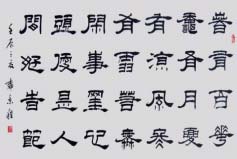 春有百花
秋有月夏
有涼風冬
有雪若無
閒事挂心
頭便是人
間好時節
壬辰